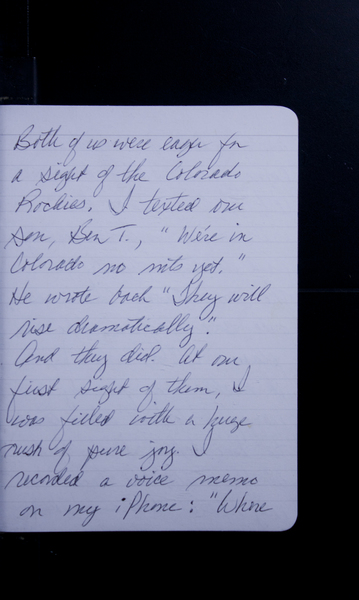 Both of us were eager for
a sight of the Colorado
Rockies. I texted our
son, Ben T., "We're in
Colorado no mts yet."
He wrote back "They will
rise dramatically".
And they did. At our
first sight of them, I
was filled with a huge
rush of pure joy. I
recorded a voice memo
on my iPhone: "Whore